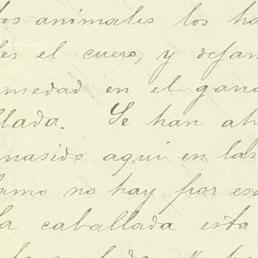 tos animales los ha
les el cuero, y dejan
rmedad en el gana
llada. Se han ah
nasido aqui en las
lamo no hay por es
la caballada esta